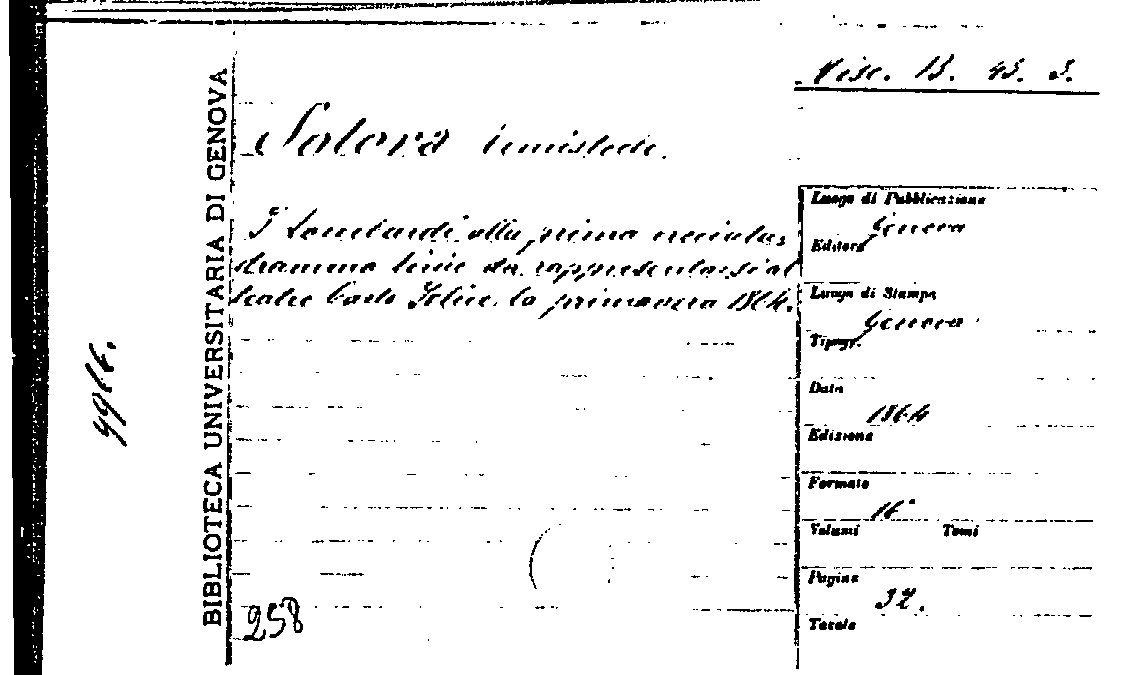 Misc. B. 43. 3.
Solera Temistocle.
I Lombardi alla prima crociata,
dramma lirico da rappresentarsi al
teatro Carlo Felice la primavera 1864.
BIBLIOTECA UNIVERSITARIA DI GENOVA
258
Luogo di Pubblicazione
Genova
Editore
Luogo di Stampa
Genova
Tipogr.
Data
1864
Edizione
Formato
16°
Volumi Tomi
Pagine
32.
Tavole